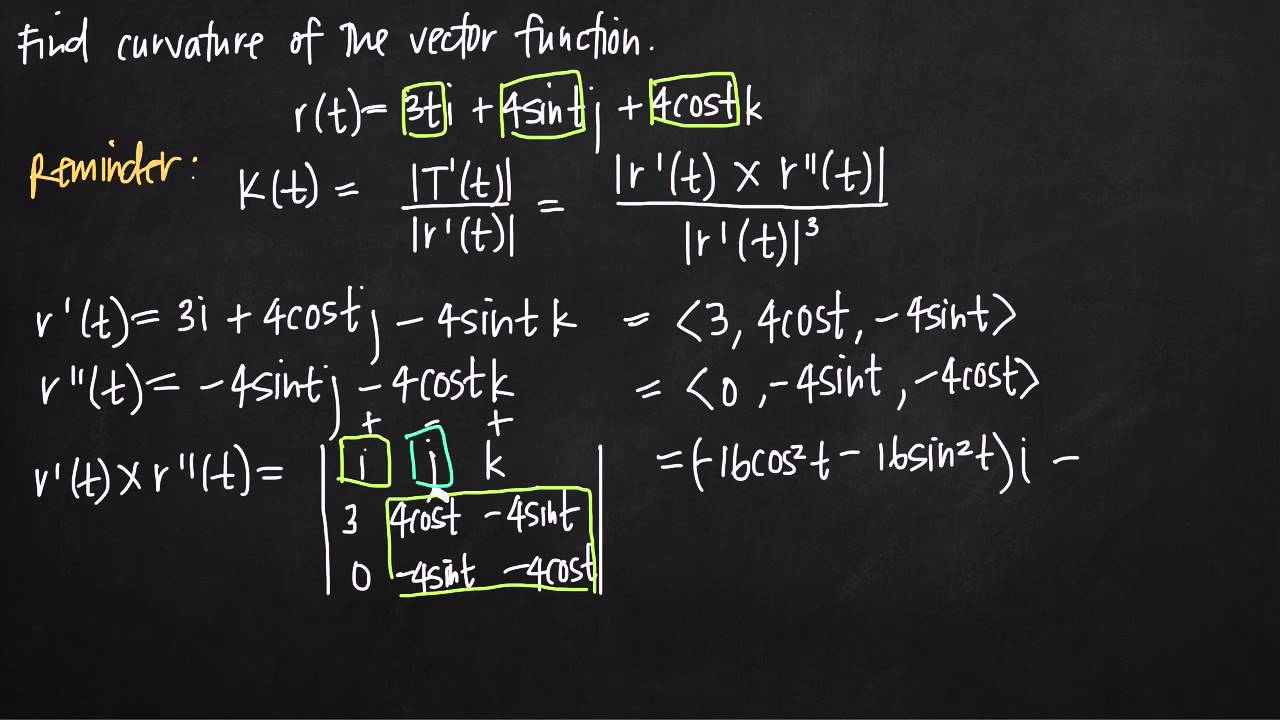 Find curvature of the vector function.
r(t)= 3ti + 4sintj + 4costk
Reminder: K(t) = |T'(t)| / |r'(t)| = |r'(t) x r''(t)| / |r'(t)|³
r'(t)= 3i + 4costj - 4sintk = <3, 4cost, -4sint>
r''(t)= -4sintj - 4costk = <0, -4sint, -4cost>
+ - +
r'(t) x r''(t)= | i j k | =(-16cos²t - 16sin²t)i -
3 4cost -4sint
0 -4sint -4cost